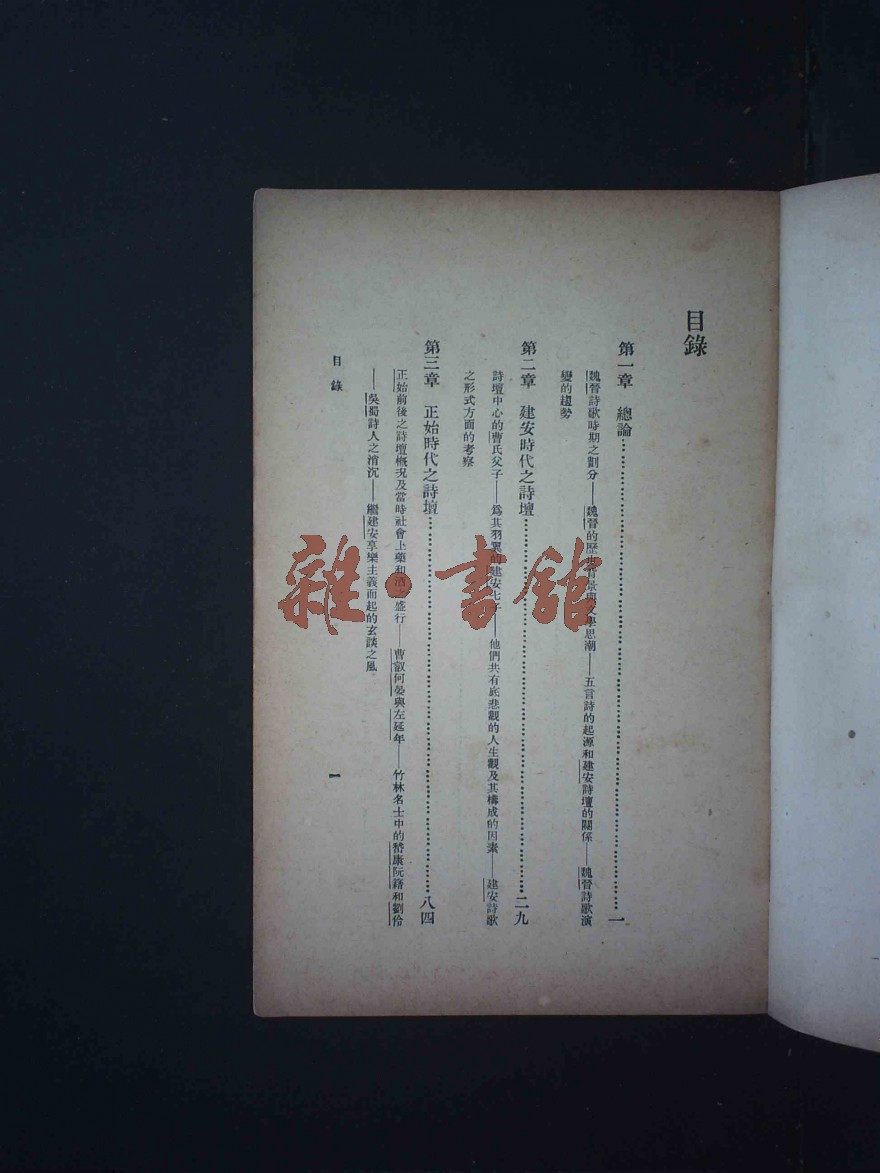 目錄
第一章　總論……一
魏晉詩歌時期之劃分——魏晉的歷史背景與文學思潮——五言詩的起源和建安詩壇的關係——魏晉詩歌演
變的趨勢
第二章　建安時代之詩壇……二九
詩壇中心的曹氏父子——爲其羽翼的建安七子——他們共有底悲觀的人生觀及其構成的因素——建安詩歌
之形式方面的考察
第三章　正始時代之詩壇……八四
正始前後之詩壇概况及當時社會上藥和酒之盛行——曹叡何晏與左延年——竹林名士中的嵇康阮籍和劉伶
——吳蜀詩人之消沉——繼建安享樂主義而起的玄談之風
目錄
一
雜·書館